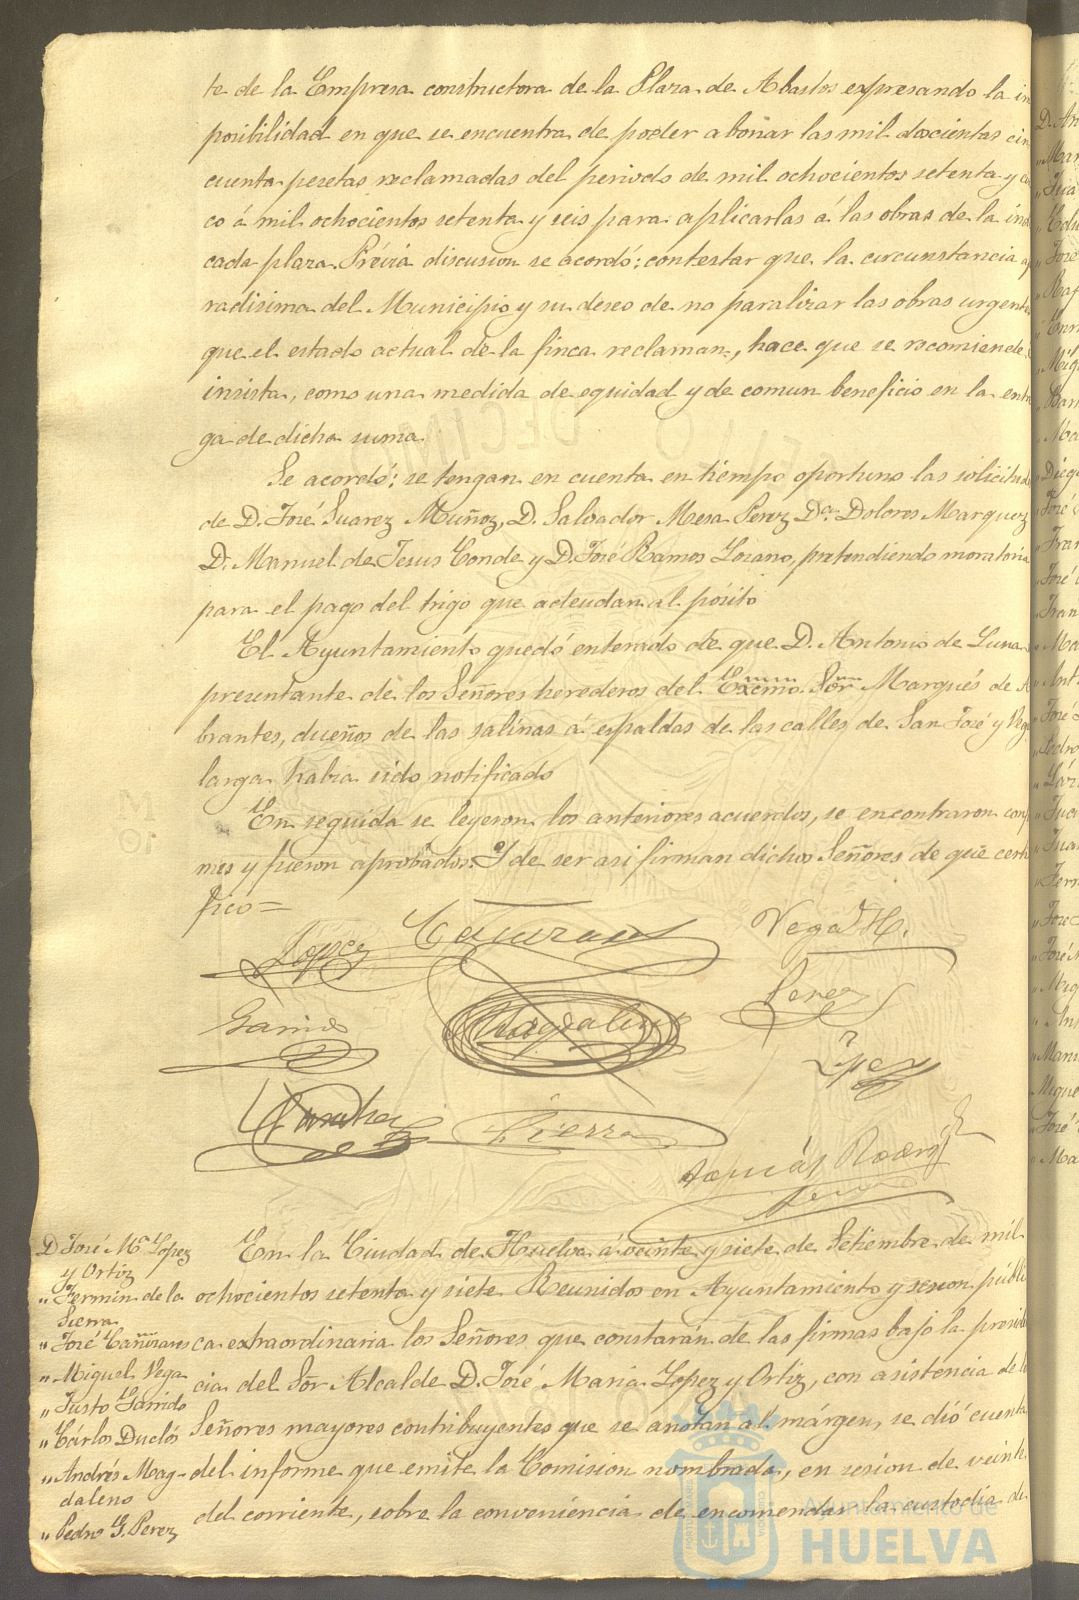 te de la Empresa constructora de la Plaza de Abastos expresando la im
posibilidad en que se encuentra de poder abonar las mil doscientas cin
cuenta pesetas reclamadas del periodo de mil ochocientos setenta y cin
co á mil ochocientos setenta y seis para aplicarlas á las obras de la indi
cada plaza. Prévia discusion se acordó: contestar que la circunstancia apu
radisima del Municipio y su deseo de no paralizar las obras urgentes
que el estado actual de la finca reclaman, hace que se recomiende é
insista, como una medida de equidad y de comun beneficio en la entre
ga de dicha suma.
Se acordó: se tengan en cuenta en tiempo oportuno las solicitudes
de D. José Suarez Muñoz, D. Salvador Mesa Perez Dª Dolores Marquez
D. Manuel de Jesus Conde y D. José Ramos Lozano, pretendiendo moratoria
para el pago del trigo que adeudan al pósito
El Ayuntamiento quedó enterado de que D. Antonio de Luna
presentante de los Señores herederos del Excmo. Sor Marqués de A
brantes, dueños de las salinas á espaldas de las calles de San José y Vega
larga habia sido notificado
En seguida se leyeron los anteriores acuerdos, se encontraron confor
mes y fueron aprobados. Y de ser asi firman dichos Señores de que certi
fico=
Lopez Cañizares Vega H.
Garrido Magdaleno Perez
Lopez
Sierra
Tomás Rodrig
D. José Mª Lopez
y Ortiz
„ Fermin de la
Sierra
„ José Cañizares
„ Miguel Vega
„ Justo Garrido
„ Cárlos Duclós
„ Andrés Mag-
daleno
„ Pedro G. Perez
En la Ciudad de Huelva á veinte y siete de Setiembre de mil
ochocientos setenta y siete Reunidos en Ayuntamiento y sesion públi
ca extraordinaria los Señores que constarán de las firmas bajo la presiden
cia del Sor Alcalde D. José Maria Lopez y Ortiz, con asistencia de los
Señores mayores contribuyentes que se anotan al márgen, se dió cuenta
del informe que emite la Comision nombrada, en sesion de veinte
del corriente, sobre la conveniencia de encomendar la custodia de
Ayuntamiento de
HUELVA